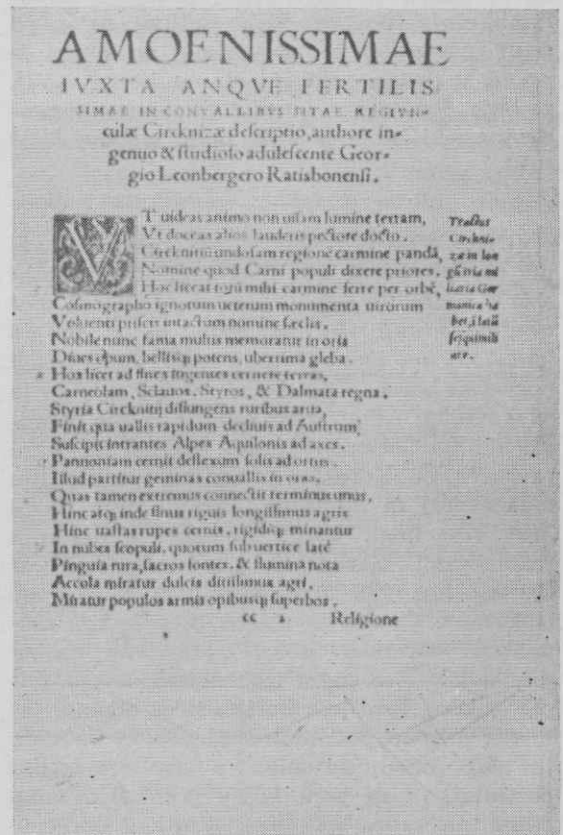 AMOENISSIMAE
IVXTA ANQVE FERTILIS
SIMAE IN CONVALLIBVS SITAE REGIVN-
culæ Circknizæ descriptio, authore in-
genuo & studioso adulescente Geor-
gio Leonbergero Ratisbonensi.
VT uideas animo non uisam lumine terram,
Vt doceas alios laudetis pectore docto.
Circknitiū undosam regione carmine pandā,
Nomine quod Carni populi dixere priores.
Hoc liceat mihi carmine ferre per orbē,
Cosmographo ignotum ueterum monumenta uirorum
Voluenti priscis intactum nomine sæclis.
Nobile nunc fama multus memoratur in oris
Diues opum, bellisq; potens, uberrima gleba.
Hos licet ad fines ingentes cernere terras,
Carneolam, Sclauos, Styros, & Dalmata regna.
Styria Circknitij disiungens ruribus arua,
Finit qua uallis rapidum decliuis ad Austrum,
Suscipit intrantes Alpes Aquilonis ad axes.
Pannoniam cernit deflexum solis ad ortus.
Illud partitur geminas conuallis in oras.
Quas tamen extremus connectit terminus unus.
Hinc atq; inde sinus riguis longissimus agris
Hinc uastas rupes cernis, rigidiq; minantur
In nubes scopuli, quorum sub uertice latē
Pinguia rura, sacros fontes, & flumina nota
Accola miratur dulcis ditissimus agri.
Miratur populos armis opibusq; superbos.
cc 2 Religione
Tractus
Circkni-
zæ in lon
mi
liaria Ger
manica ha
bet, i latū
sesquimili
are.